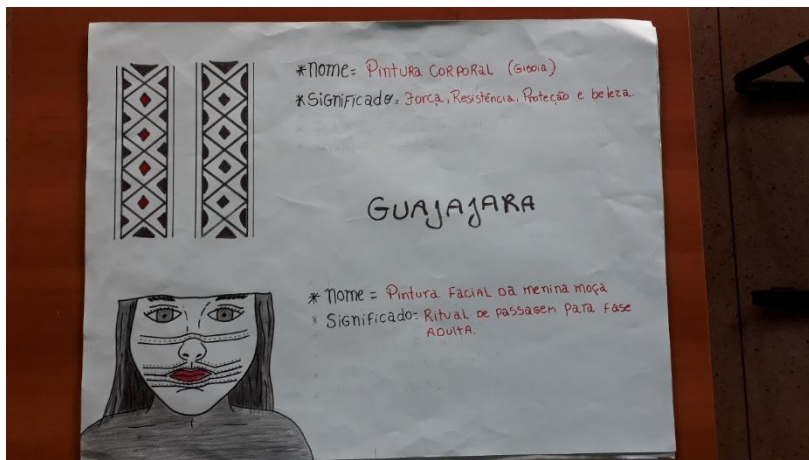 *Nome= Pintura CORPORAL (Giboia)
*Significado= Força, Resistência, Proteção e beleza.
GUAJAJARA
* Nome = Pintura Facial da menina moça
* Significado= Ritual de passagem para fase
ADULTA.